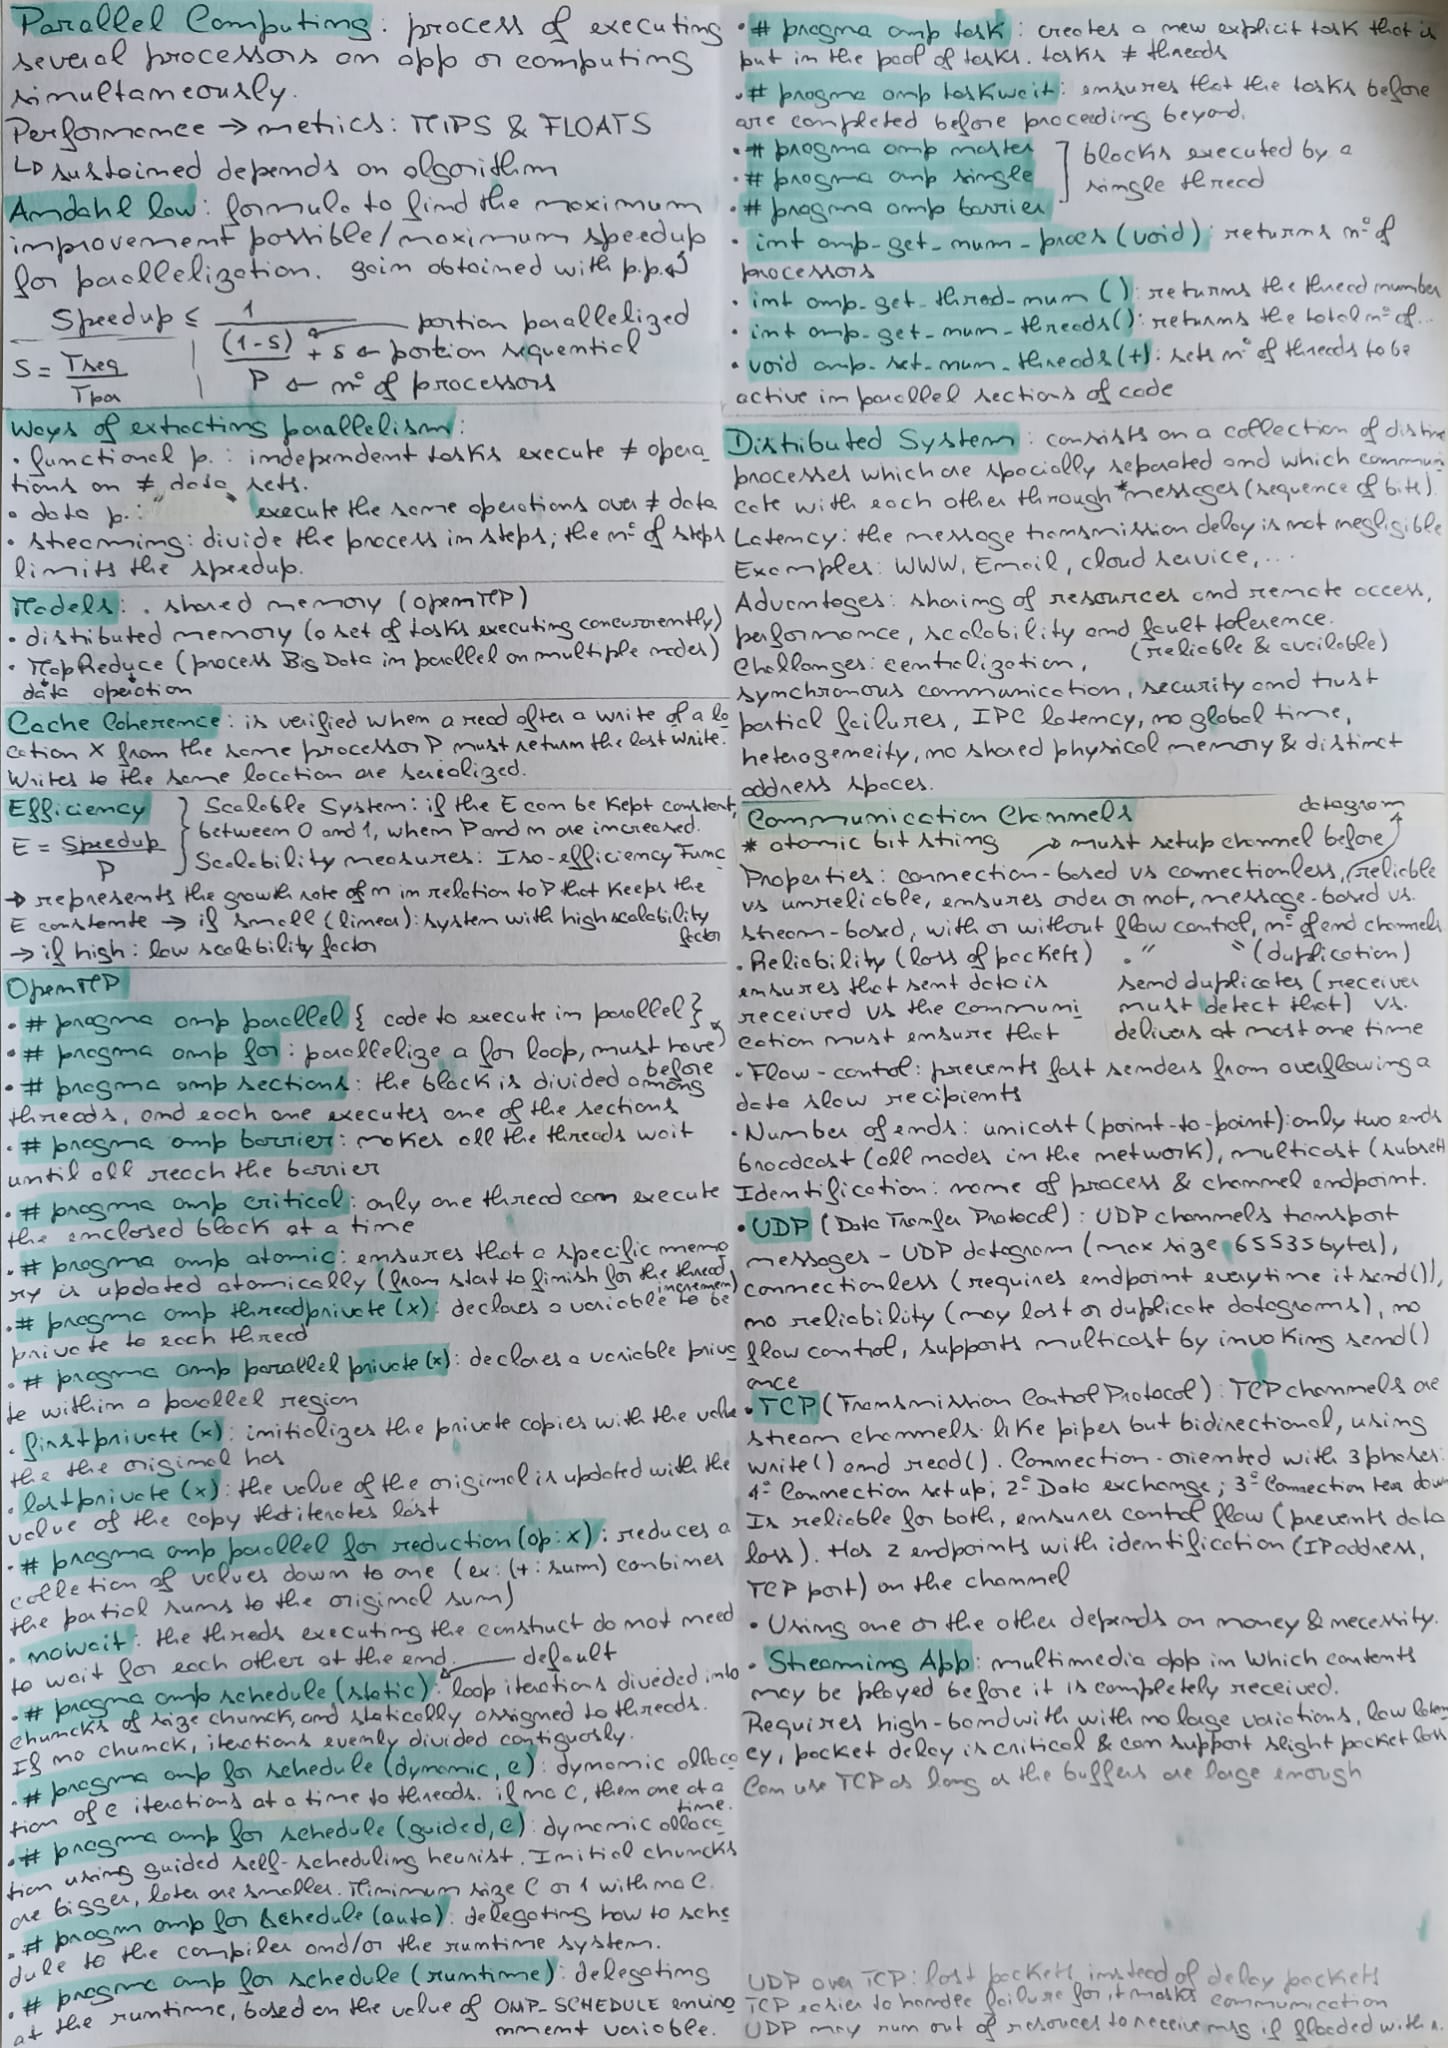 Parallel Computing: process of executing
several processors on app or computing
simultaneously.
Performance → metrics: MIPS & FLOATS
↳ sustained depends on algorithm
Amdahl law: formula to find the maximum
improvement possible/maximum speedup
for parallelization. gain obtained with p.p.
Speedup ≤ 1 / ((1-s) + s / P)
portion parallelized
portion sequential
nº of processors
S = Tseq / Tpar
Ways of extracting parallelism:
• functional p.: independent tasks execute ≠ opera_
tions on ≠ data sets.
• data p.: " " execute the same operations over ≠ data
• streaming: divide the process in steps; the nº of steps
limits the speedup.
Models: . shared memory (openMP)
• distributed memory (a set of tasks executing concurrently)
• MapReduce (process Big Data in parallel on multiple nodes)
data operation
Cache Coherence: is verified when a read after a write of a lo_
cation X from the same processor P must return the last write.
Writes to the same location are serialized.
Efficiency
E = Speedup / P
Scalable System: if the E can be kept constant,
between 0 and 1, when P and n are increased.
Scalability measures: Iso-efficiency Func
→ represents the growth rate of n in relation to P that keeps the
E constante → if small (linear): system with high scalability
factor
→ if high: low scalability factor
OpenMP
• # pragma omp parallel { code to execute in parallel }
• # pragma omp for: parallelize a for loop, must have
before
• # pragma omp sections: the block is divided among
threads, and each one executes one of the sections
• # pragma omp barrier: makes all the threads wait
until all reach the barrier
• # pragma omp critical: only one thread can execute
the enclosed block at a time
• # pragma omp atomic: ensures that a specific memo
ry is updated atomically (from start to finish for the thread
increment)
• # pragma omp threadprivate (x): declares a variable to be
private to each thread
• # pragma omp parallel private (x): declares a variable priva
te within a parallel region
• firstprivate (x): initializes the private copies with the value
the the original has
• lastprivate (x): the value of the original is updated with the
value of the copy that iterates last
• # pragma omp parallel for reduction (op: x): reduces a
colletion of values down to one (ex: (+: sum) combines
the partial sums to the original sum)
• nowait: the threds executing the construct do not need
to wait for each other at the end.
default
• # pragma omp schedule (static): loop iterations divided into
chuncks of size chunck, and statically assigned to threads.
If no chunck, iterations evenly divided contiguosly.
• # pragma omp for schedule (dynamic, c): dynamic alloca
tion of c iterations at a time to threads. if no C, then one at a
time.
• # pragma omp for schedule (guided, c): dynamic alloca
tion using guided self-scheduling heurist. Initial chuncks
are bigger, later are smaller. Minimum size C or 1 with no C.
• # pragm omp for schedule (auto): delegating how to sche
dule to the compiler and/or the runtime system.
• # pragma omp for schedule (runtime): delegating
at the runtime, based on the value of OMP_SCHEDULE enviro
nment variable.
• # pragma omp task: creates a new explicit task that is
put in the pool of tasks. tasks ≠ threads
• # pragma omp taskwait: ensures that the tasks before
are completed before proceeding beyond.
• # pragma omp master
• # pragma omp single
blocks executed by a
single thread
• # pragma omp barrier
• int omp_get_num_procs (void): returns nº of
processors
• int omp_get_thred_num (): returns the thread number
• int omp_get_num_threads(): returns the total nº of...
• void omp_set_num_threads(t): sets nº of threads to be
active in parallel sections of code
Distributed System: consists on a collection of distinc
processes which are spacially separated and which communi
cate with each other through *messages (sequence of bits).
Latency: the message transmission delay is not negligible
Examples: WWW, Email, cloud service, ...
Advantages: sharing of resources and remote access,
performance, scalability and fault tolerence.
(reliable & available)
Challanges: centralization,
synchronous communication, security and trust
partial failures, IPC latency, no global time,
heterogeneity, no shared physical memory & distinct
address spaces.
Communication Channels
datagram
* atomic bit string → must setup channel before
Properties: connection-based vs connectionless, reliable
vs unreliable, ensures order or not, message-based vs.
stream-based, with or without flow control, nº of end channels
• Reliability (loss of packets)
ensures that sent data is
received vs the communi_
cation must ensure that
• " " (duplication)
send duplicates (receiver
must detect that) vs.
delivers at most one time
• Flow-control: prevents fast senders from overflowing a
data slow recipients
• Number of ends: unicast (point-to-point): only two ends
broadcast (all nodes in the network), multicast (subset)
Identification: name of process & channel endpoint.
• UDP (Data Transfer Protocol): UDP channels transport
messages - UDP datagram (max size 65535 bytes),
connectionless (requires endpoint everytime it send()),
no reliability (may lost or duplicate datagrams), no
flow control, supports multicast by invoking send()
once
• TCP (Transmission Control Protocol): TCP channels are
stream channels like pipes but bidirectional, using
write() and read(). Connection-oriented with 3 phases:
1º Connection set up; 2º Data exchange; 3º Connection tear down
Is reliable for both, ensures control flow (prevents data
loss). Has 2 endpoints with identification (IP address,
TCP port) on the channel
• Using one or the other depends on money & necessity.
• Streaming App: multimedia app in which contents
may be played before it is completely received.
Requires high-bandwith with no large variations, low laten
cy, packet delay is critical & can support slight packet loss
Can use TCP as long as the buffers are large enough
UDP over TCP: lost packets instead of delay packets
TCP easier to handle failure for it masks communication
UDP may run out of resouces to receive msg if flooded with